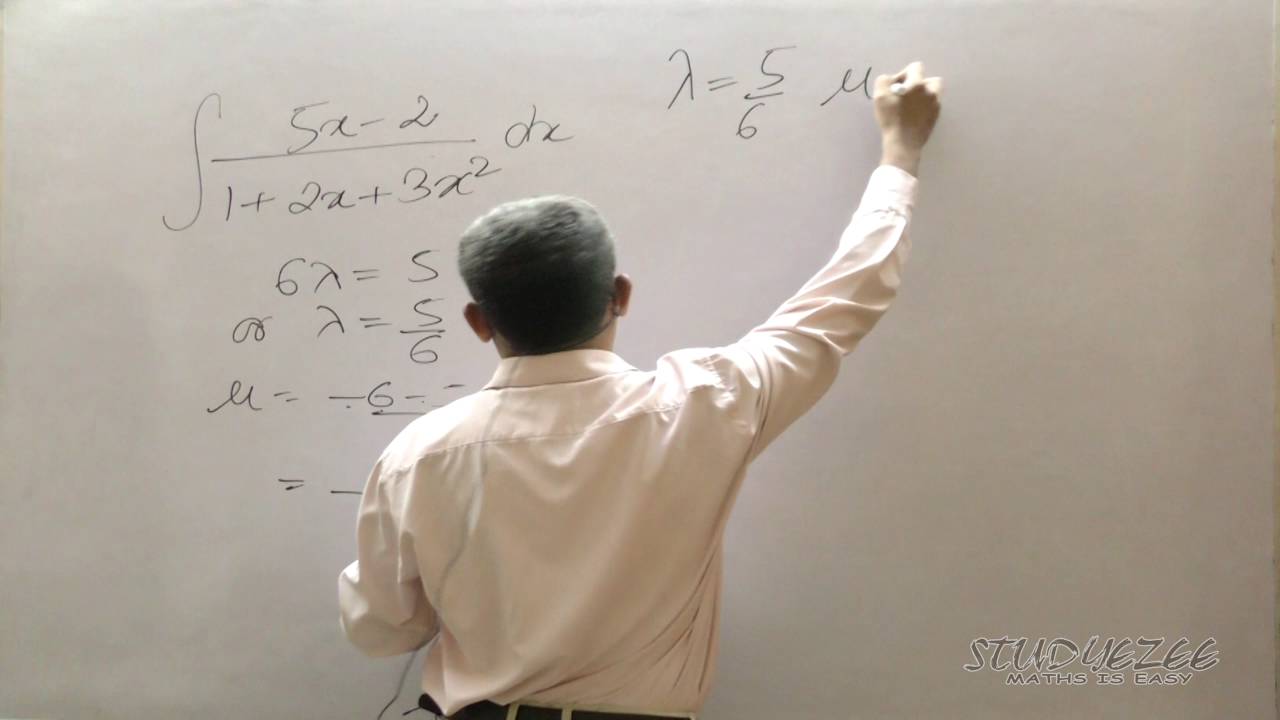 ∫ (5x-2)/(1+2x+3x²) dx
λ = 5/6 μ
6λ = 5
or λ = 5/6
μ = -6-
= -
STUDYEZEE
MATHS IS EASY